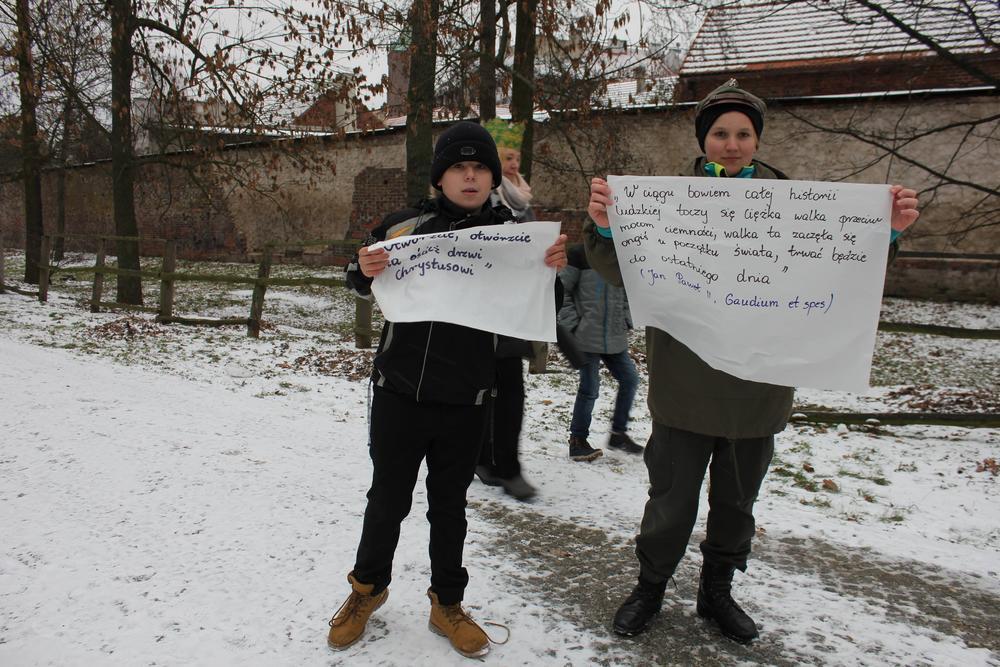 Otwórzcie, otwórzcie
na oścież drzwi
Chrystusowi"
"W ciągu bowiem całej historii
ludzkiej toczy się ciężka walka przeciw
mocom ciemności, walka ta zaczęła się
ongiś u początku świata, trwać będzie
do ostatniego dnia"
(Jan Paweł II, Gaudium et spes)